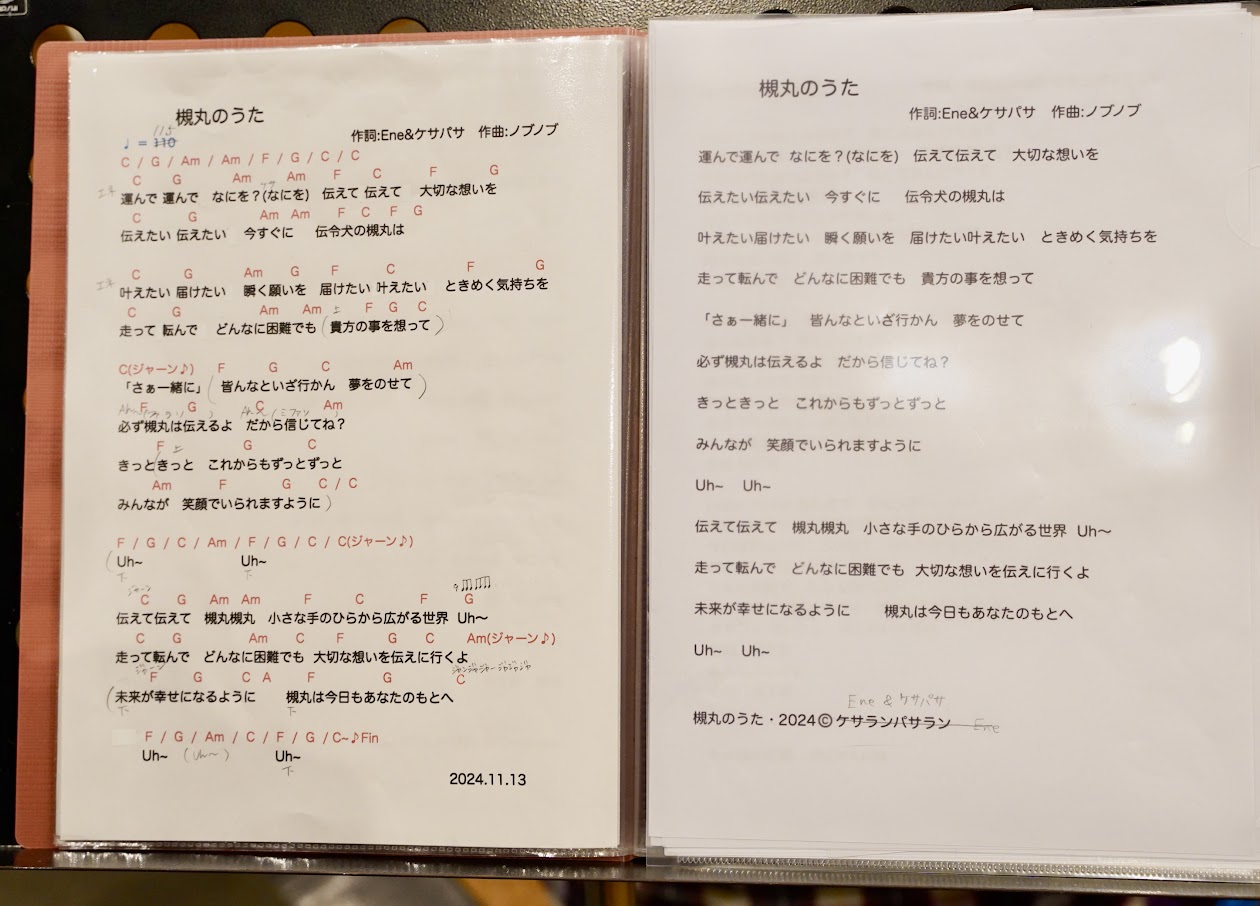 槻丸のうた
115
♩ = 110
作詞:Ene&ケサパサ 作曲:ノブノブ
C / G / Am / Am / F / G / C / C
C G Am Am F C F G
エネ 運んで 運んで なにを?(なにを) 伝えて 伝えて 大切な想いを
C G Am Am F C F G
伝えたい 伝えたい 今すぐに 伝令犬の槻丸は
C G Am G F C F G
エネ 叶えたい 届けたい 瞬く願いを 届けたい 叶えたい ときめく気持ちを
C G Am Am 上 F G C
走って 転んで どんなに困難でも (貴方の事を想って)
C(ジャーン♪) F G C Am
「さぁ一緒に」(皆んなといざ行かん 夢をのせて)
F G C Am
必ず槻丸は伝えるよ だから信じてね?
F 上 G C
きっときっと これからもずっとずっと
Am F G C / C
みんなが 笑顔でいられますように)
F / G / C / Am / F / G / C / C(ジャーン♪)
(Uh~ Uh~
下 下
ジャーン
C G Am Am F C F G
伝えて伝えて 槻丸槻丸 小さな手のひらから広がる世界 Uh〜
C G Am C F G C Am(ジャーン♪)
走って転んで どんなに困難でも 大切な想いを伝えに行くよ
ジャーン
F G C A F G C
(未来が幸せになるように 槻丸は今日もあなたのもとへ
下 下
F / G / Am / C / F / G / C~♪Fin
Uh~ (Uh~) Uh~
下
2024.11.13
槻丸のうた
作詞:Ene&ケサパサ 作曲:ノブノブ
運んで運んで なにを?(なにを) 伝えて伝えて 大切な想いを
伝えたい伝えたい 今すぐに 伝令犬の槻丸は
叶えたい届けたい 瞬く願いを 届けたい叶えたい ときめく気持ちを
走って転んで どんなに困難でも 貴方の事を想って
「さぁ一緒に」 皆んなといざ行かん 夢をのせて
必ず槻丸は伝えるよ だから信じてね?
きっときっと これからもずっとずっと
みんなが 笑顔でいられますように
Uh~ Uh~
伝えて伝えて 槻丸槻丸 小さな手のひらから広がる世界 Uh〜
走って転んで どんなに困難でも 大切な想いを伝えに行くよ
未来が幸せになるように 槻丸は今日もあなたのもとへ
Uh~ Uh~
Ene & ケサパサ
槻丸のうた・2024©ケサランパサラン Ene